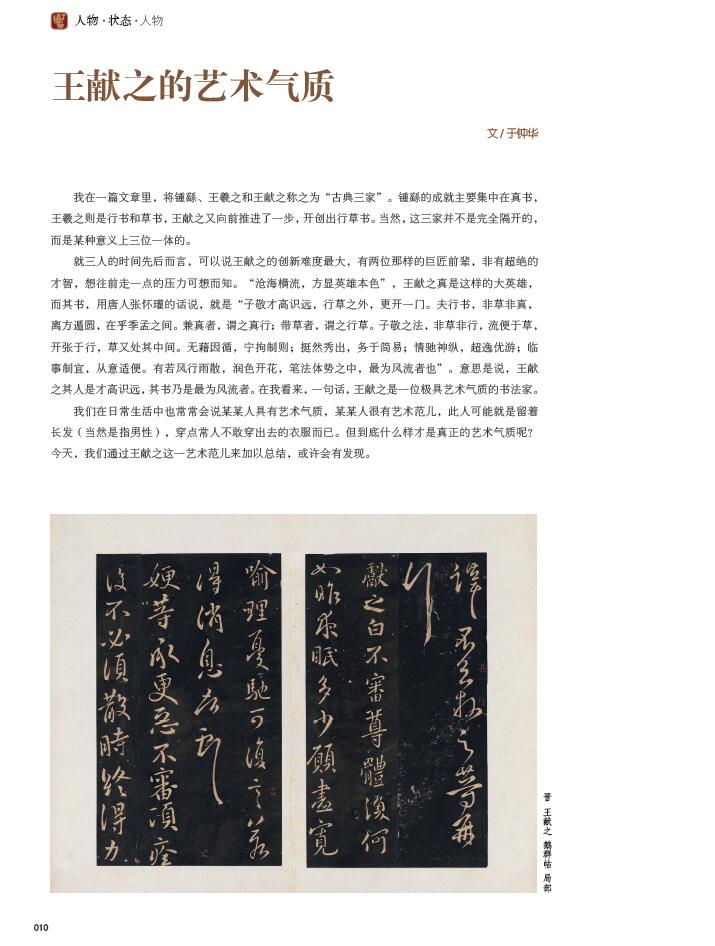 人物·状态·人物
王献之的艺术气质
文 / 于钟华
我在一篇文章里，将锺繇、王羲之和王献之称之为“古典三家”。锺繇的成就主要集中在真书，
王羲之则是行书和草书，王献之又向前推进了一步，开创出行草书。当然，这三家并不是完全隔开的，
而是某种意义上三位一体的。
就三人的时间先后而言，可以说王献之的创新难度最大，有两位那样的巨匠前辈，非有超绝的
才智，想往前走一点的压力可想而知。“沧海横流，方显英雄本色”，王献之真是这样的大英雄，
而其书，用唐人张怀瓘的话说，就是“子敬才高识远，行草之外，更开一门。夫行书，非草非真，
离方遁圆，在乎季孟之间。兼真者，谓之真行；带草者，谓之行草。子敬之法，非草非行，流便于草，
开张于行，草又处其中间。无藉因循，宁拘制则；挺然秀出，务于简易；情驰神纵，超逸优游；临
事制宜，从意适便。有若风行雨散，润色开花，笔法体势之中，最为风流者也”。意思是说，王献
之其人是才高识远，其书乃是最为风流者。在我看来，一句话，王献之是一位极具艺术气质的书法家。
我们在日常生活中也常常会说某某人具有艺术气质，某某人很有艺术范儿，此人可能就是留着
长发（当然是指男性），穿点常人不敢穿出去的衣服而已。但到底什么样才是真正的艺术气质呢？
今天，我们通过王献之这一艺术范儿来加以总结，或许会有发现。
獻之白不審尊體復何
如昨來眠多少願盡寬
喻理憂馳可復言
得消息
等承更惡不審項
復不必須散時得力
晋 王献之 鹅群帖 局部
010